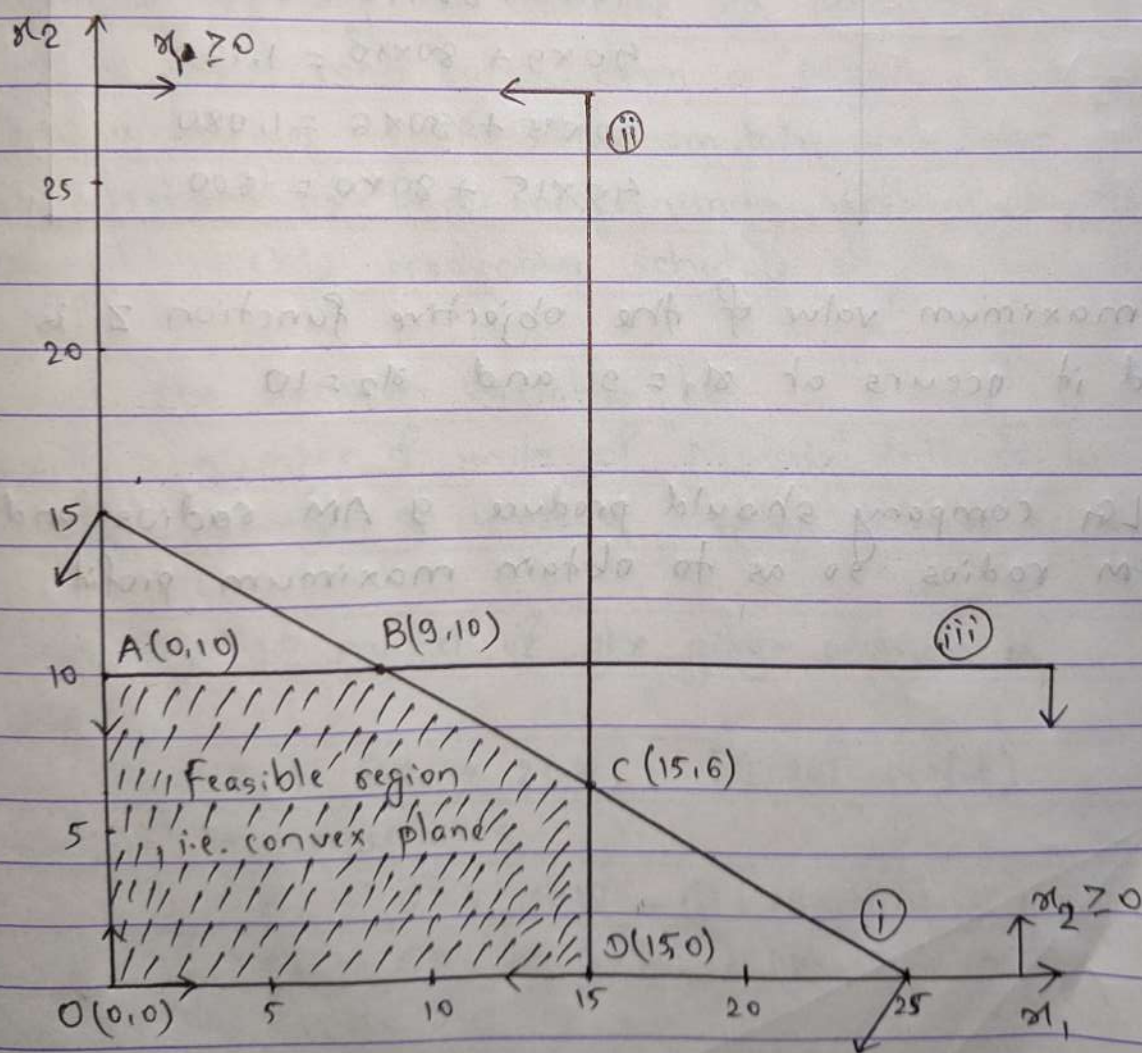 x₂
x₁ ≥ 0
ii
25
20
15
A(0,10)
B(9,10)
iii
10
C(15,6)
Feasible region
i.e. convex plane
5
i
x₂ ≥ 0
D(15,0)
O(0,0)
5
10
15
20
25
x₁